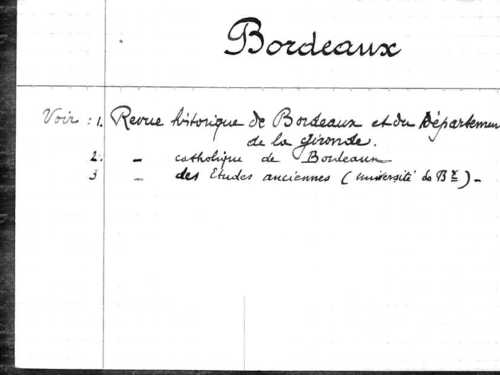 Bordeaux
Voir : 1. Revue historique de Bordeaux et du Départemen
de la Gironde.
2. - catholique de Bordeaux
3 - des Etudes anciennes (Université de Bx) -